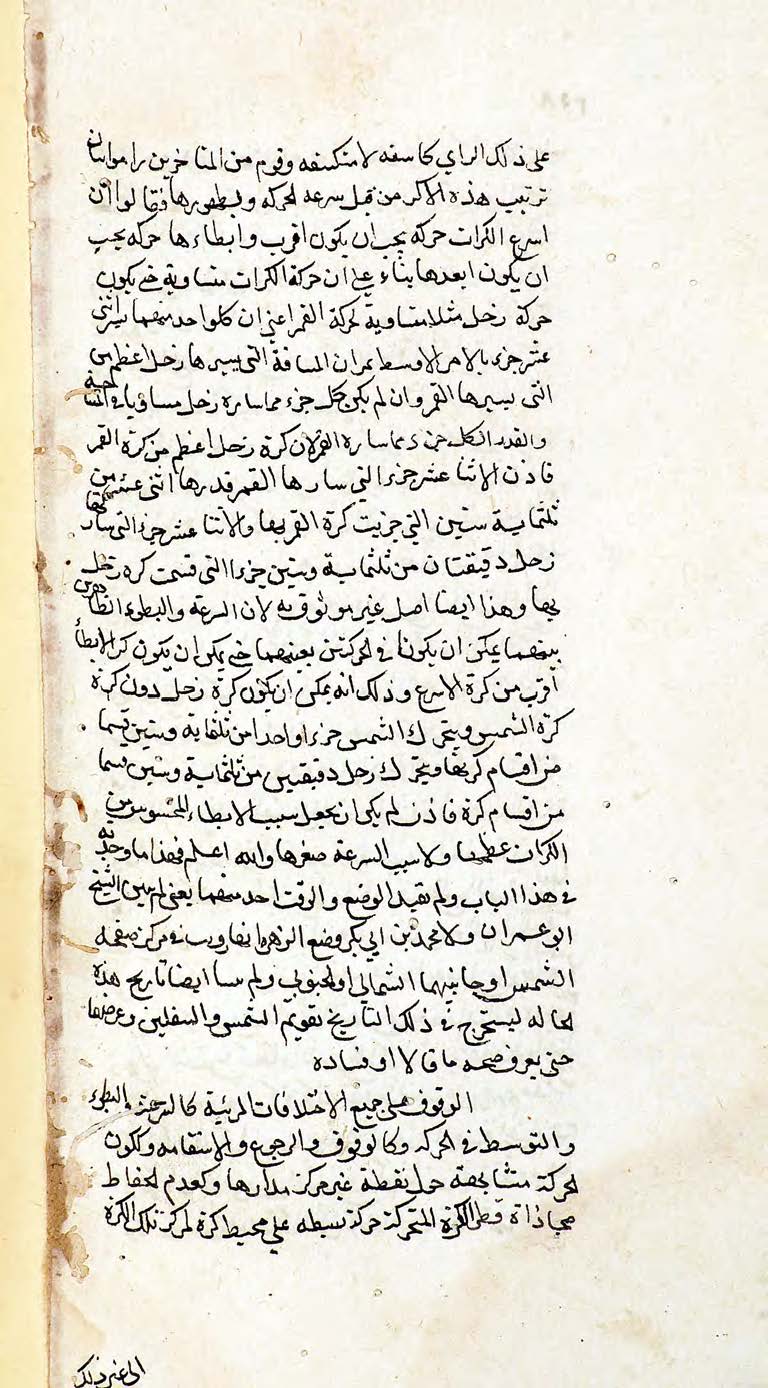 على ذلك الراي كاسفه لا منكسفه وقوم من المتاخرين راموا اثبات
ترتيب هذه الاكر من قبل سرعه الحركه وبطوءها فقالوا ان
اسرع الكرات حركة يجب ان يكون اقرب وابطاءها حركه يجب
ان يكون ابعدها بناء على ان حركة الكرات متساوية حتى يكون
حركة زحل مثلا متساوية لحركة القمر اعنى ان كل واحد منهما يسير اثنى
عشر جزء بالامر الاوسط غير ان المسافة التى يسيرها زحل اعظم من
التى يسيرها القمر وان لم يكن كل جزء مما ساره زحل مساويا فى المساحة
والقدر لكل جزء مما ساره القمر لان كرة زحل اعظم من كرة القمر
فاذن الاثنا عشر جزءا التي سارها القمر قدرها اثنى عشر من
ثلثماية ستين التي جزيت كرة القمر بها والاثنا عشر جزء التى سارها
زحل دقيقتان من ثلثماية وستين جزءا التى قسمت كره زحل
بها وهذا ايضا اصل غير موثوق به لان السرعة والبطوء الظاهرين
بينهما يمكن ان يكونا فى الحركتين بعينهما حتى يمكن ان يكون كره الابطأ
اقرب من كرة الاسرع وذلك انه يمكن ان يكون كرة زحل دون كرة
كرة الشمس ويتحرك الشمس جزءا واحدا من ثلثماية وستين قسما
من اقسام كرتها ويتحرك زحل دقيقتين من ثلثماية وستين قسما
من اقسام كرة فاذن لم يكن ان يجعل سبب الابطاء المحسوس من
الكرات عظمها ولا سبب السرعة صغرها والله اعلم فهذا ما وجدته
فى هذا الباب ولم يقيد الوضع والوقت احد منهما يعنى لم يبين الشيخ
ابو عمران ولا محمد بن ابي بكر وضع الزهره انها رويت فى مركز صفحه
الشمس او جانبيهما الشمالى او الجنوبى ولم يبينا ايضا تاريخ هذه
الحاله ليستخرج فى ذلك التاريخ تقويم الشمس والسفلين وعرضها
حتى يعرف صحه ما قالا او فساده
الوقوف على جميع الاختلافات المرئية كالسرعة والبطوء
والتوسط فى الحركه وكالوقوف والرجوع والاستقامه وككون
الحركة متشابهة حول نقطة غير مركز مدارها وكعدم انحفاظ
محاذاة قطر الكرة المتحركة حركة بسيطه على محيط كرة لمركز تلك الكرة
الى غير ذلك